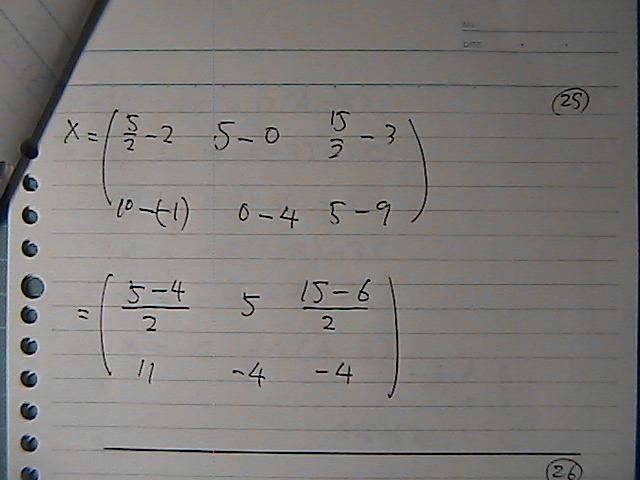 NO.
DATE
25
X = ( 5/2 - 2   5 - 0   15/2 - 3
10 - (-1)   0 - 4   5 - 9 )
= ( (5 - 4)/2   5   (15 - 6)/2
11   -4   -4 )
26